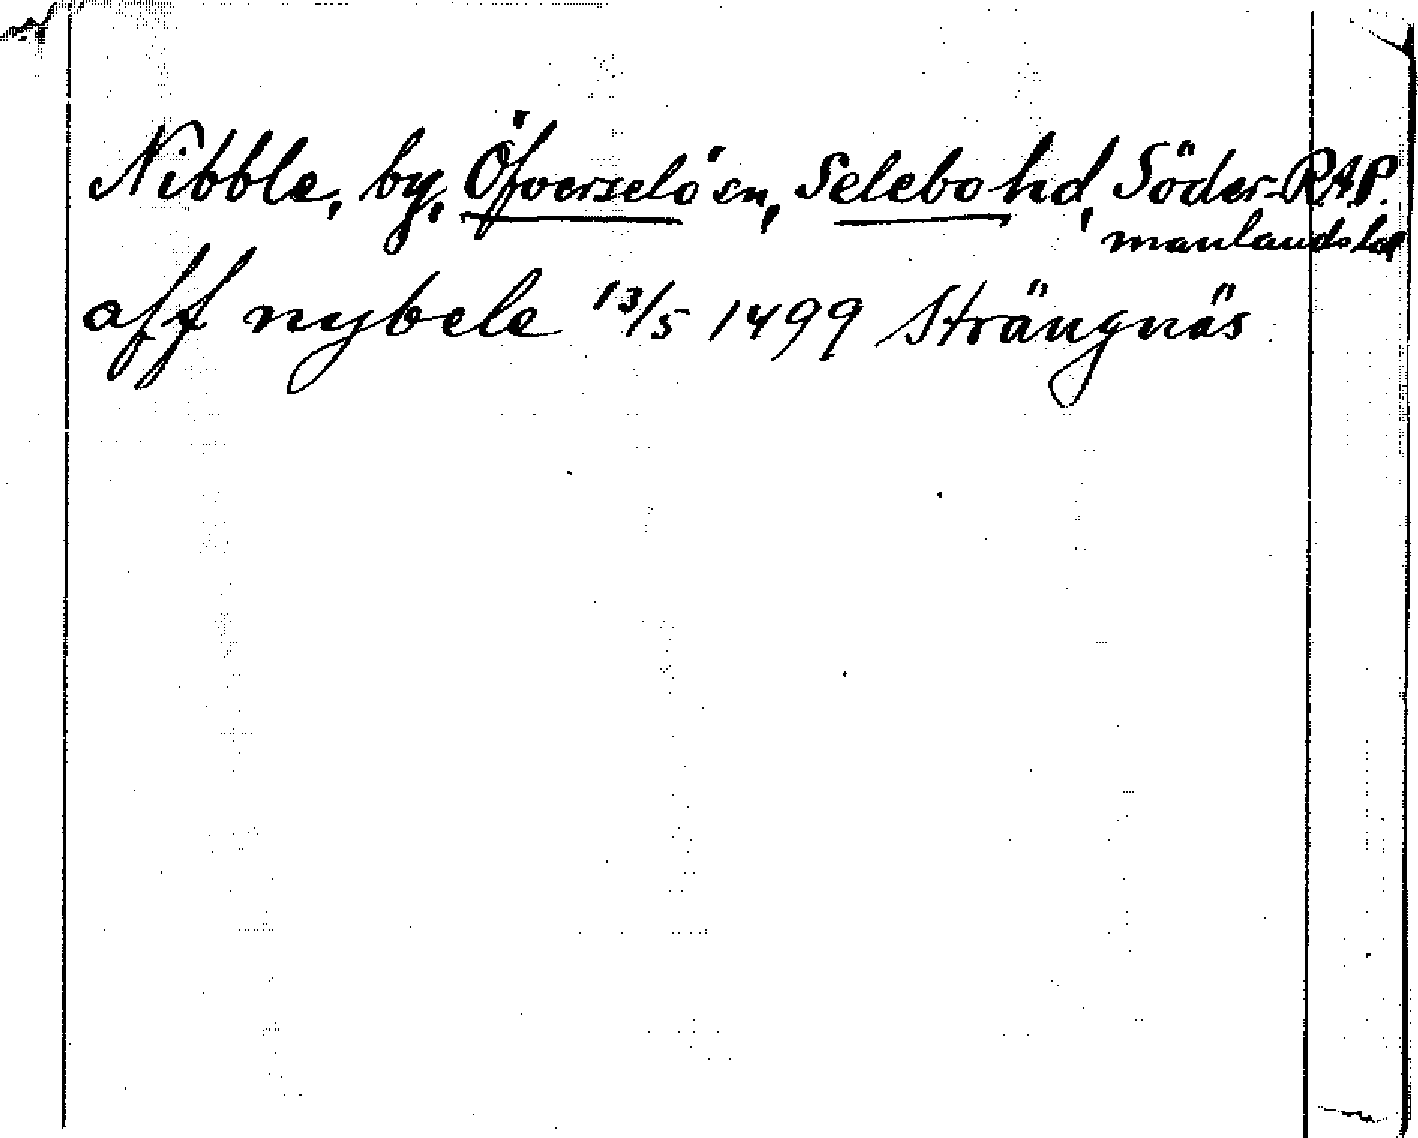 Nibble, by, Öfverselö sn, Selebo hd, Söder- RAP.
manlands län
aff nybele 13/5 1499 Strängnäs